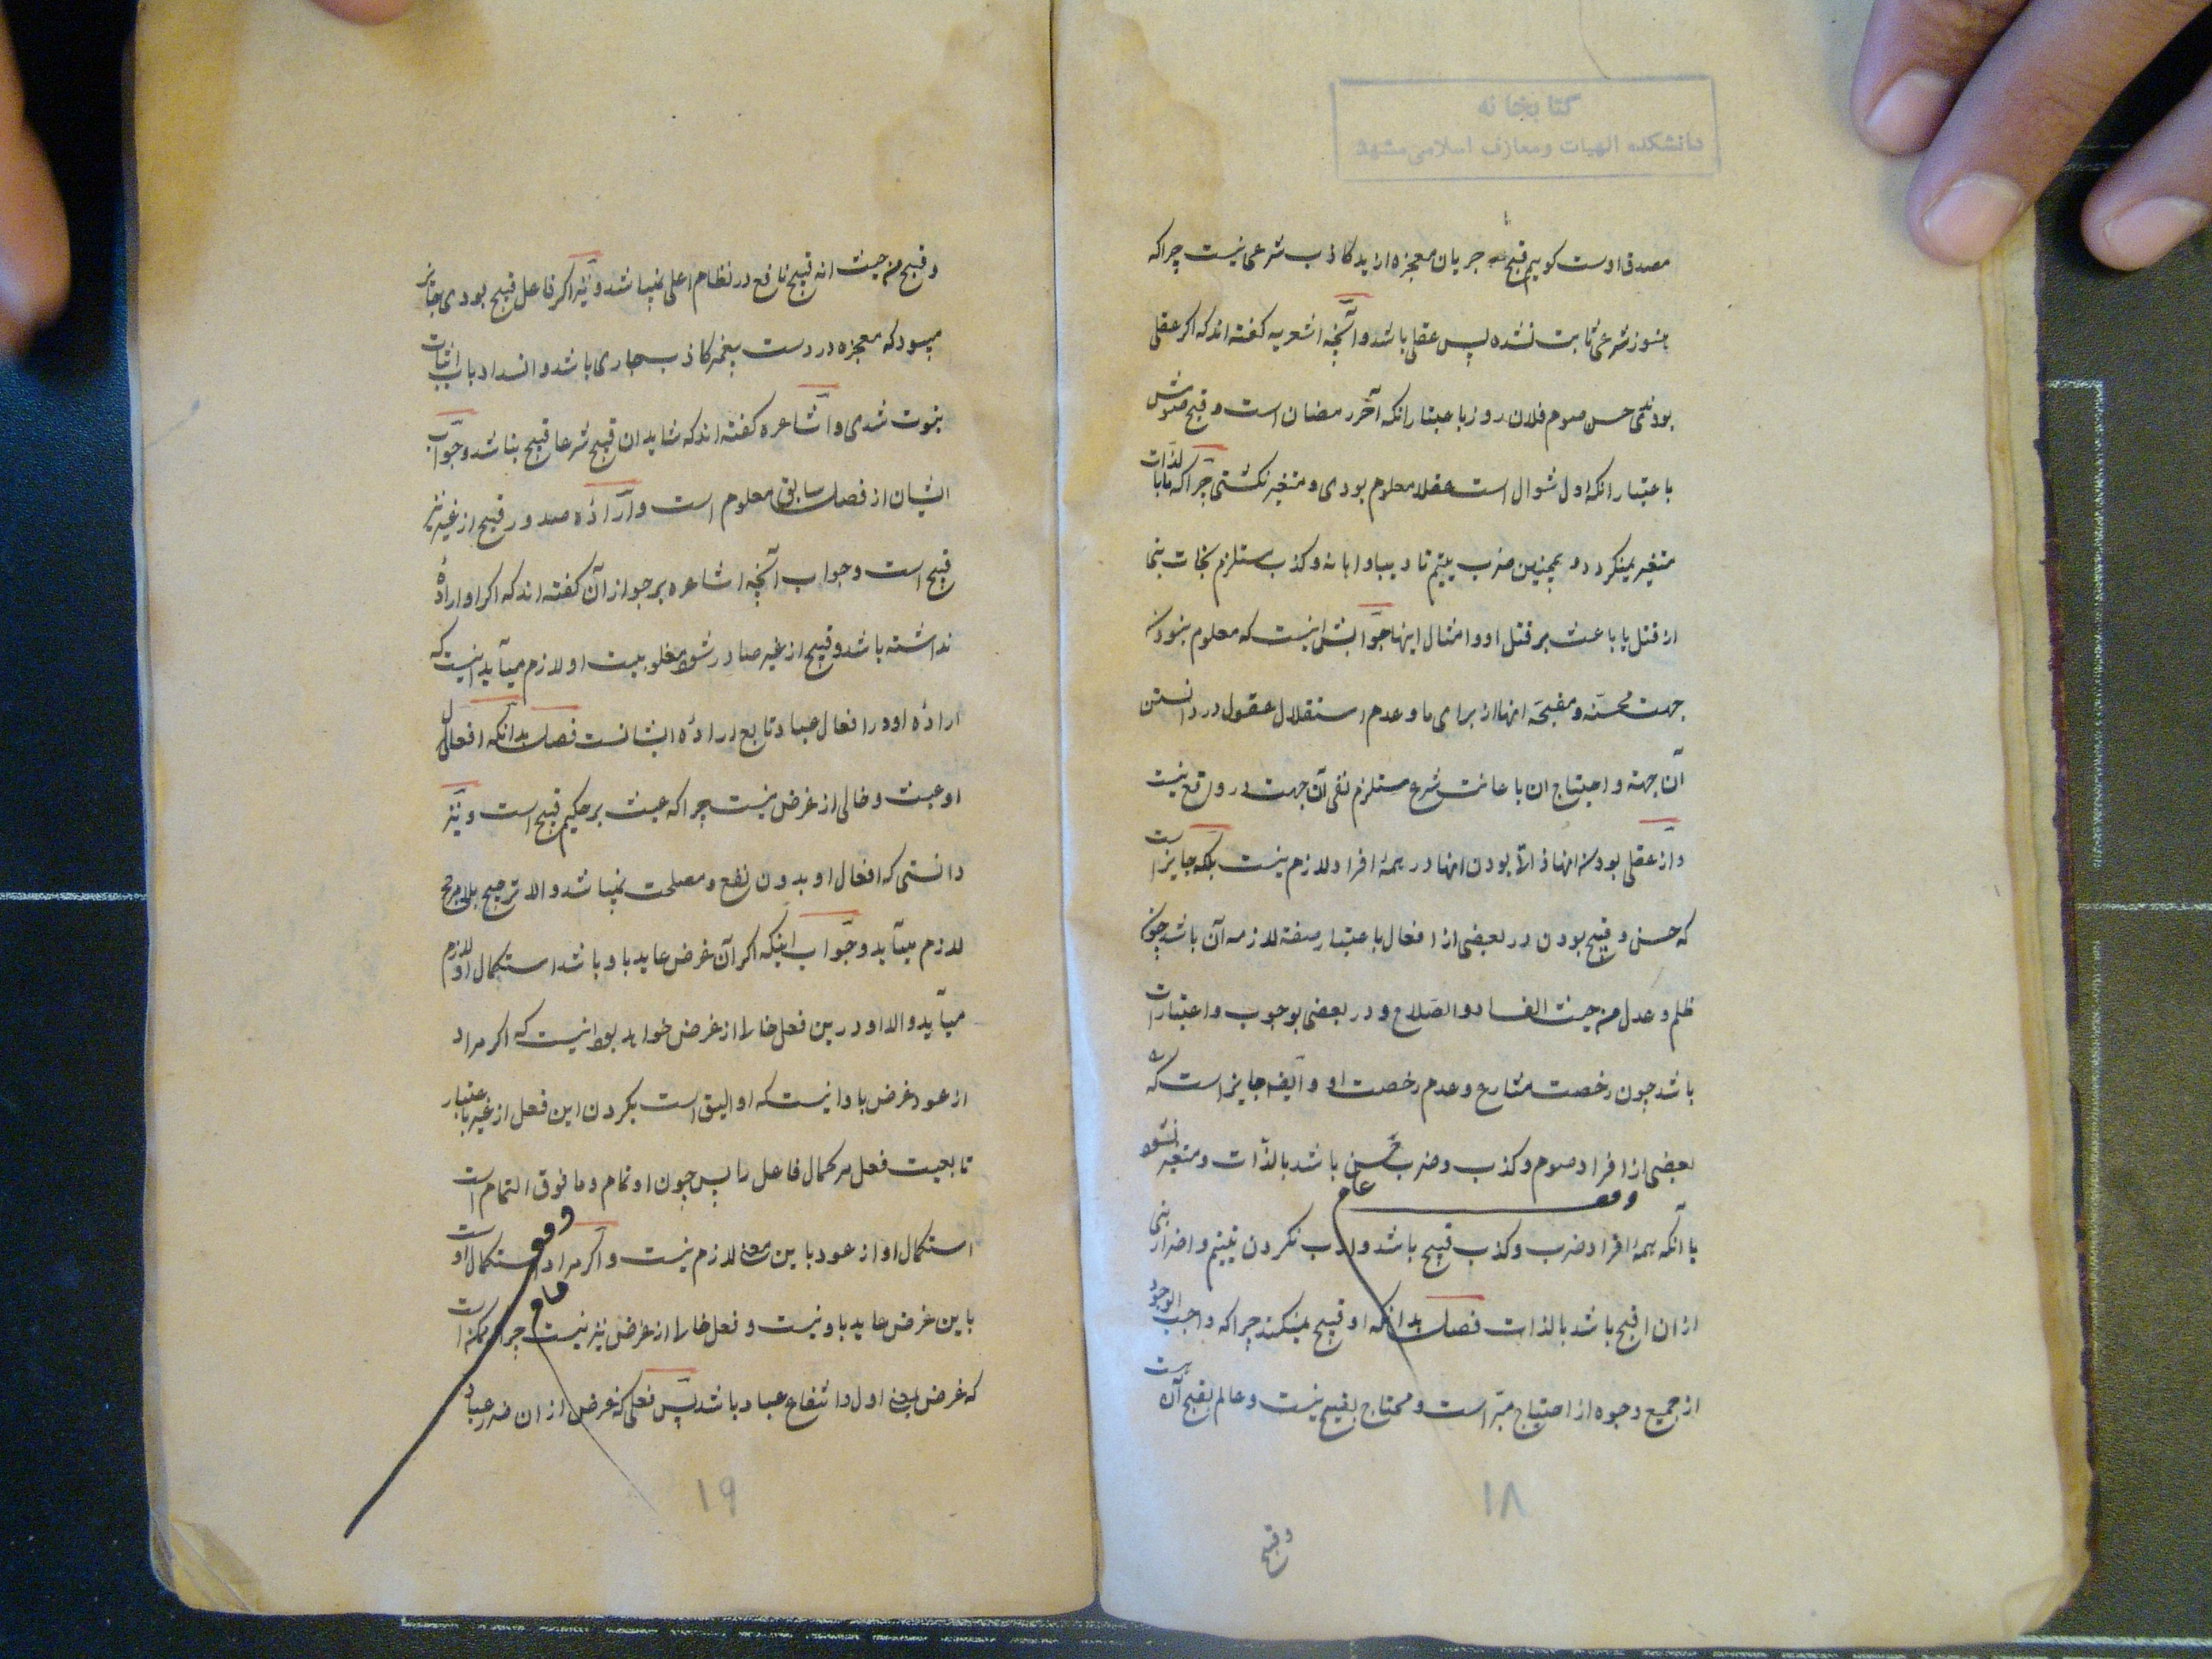 کتابخانه
دانشکده الهیات ومعارف اسلامی مشهد
مصدق اوست کوییم قبح جریان معجزه از ید کاذب شرعی نیست چراکه
هنوز شرعی ثابت نشده پس عقلی باشد و آنچه اشعریه کفته اند که اکر عقلی
بودندی حسن صوم فلان روز باعتبار انکه آخر رمضان است و قبح صومش
باعتبار انکه اول شوال است عقلا معلوم بودی و متغیر نکشتی چراکه ما بالذات
متغیر نمیکردد و همچنین ضرب یتیم تادیبا و اهانه و کذب مستلزم نجات
از قتل یا باعث بر قتل او و امثال اینها جوابش اینست که معلوم نبودن
جهت محسنه و مقبحه اینها از برای ما و عدم استقلال عقول در دانستن
آن جهة و احتیاج ان باعانت شرع مستلزم نفی آن جهت در واقع نیست
و از عقلی بودن اینها ذاتی بودن اینها در همهٔ افراد لازم نیست بلکه جایز است
که حسن و قبح بودن در بعضی از افعال باعتبار صفة لازمه آن باشد چون
ظلم و عدل من حیث الفساد و الصلاح و در بعضی بوجوب و اعتبارات
باشد چون رخصت شارع و عدم رخصت او و ایضه جایز است که
بعضی از افراد صوم و کذب و ضرب حسن باشد بالذات و متغیر نشود
وقف عام
با آنکه همهٔ افراد ضرب و کذب قبیح باشد و ادب نکردن یتیم و اضرار نبی
از ان اقبح باشد بالذات فصل بدانکه او قبیح نمیکند چراکه واجب الوجود
از جمیع وجوه از احتیاج مبرّاست و محتاج بقبیح نیست و عالم بقبح آن هست
۱۸
وقبح
وقبح من حیث انه قبیح نافع در نظام اعلی نمیباشد و نیز اکر فاعل قبیح بودی جایز
میبود که معجزه در دست پیغمبر کاذب جاری باشد و انسداد باب اثبات
نبوت شدی و اشاعره کفته اند که شاید ان قبیح شرعا قبیح نباشد و جواب
ایشان از فصل سابق معلوم است و ارادهٔ صدور قبیح از غیر نیز
قبیح است و جواب آنچه اشاعره بر جواز آن کفته اند که اکر او ارادهٔ
نداشته باشد و قبیح از غیر صادر شود مغلوبیت او لازم میآید اینست که
ارادهٔ او در افعال عباد تابع ارادهٔ ایشانست فصل بدانکه افعال
او عبث و خالی از غرض نیست چراکه عبث بر حکیم قبیح است و نیز
دانستی که افعال او بدون نفع و مصلحت نمیباشد والا ترجیح بلا مرجح
لازم میآید و جواب اینکه اکر آن غرض عاید باو باشد استکمال او لازم
میآید والا او در این فعل خالی از غرض خواهد بود اینست که اکر مراد
از عود غرض باو اینست که او الیق است بکردن این فعل از غیر باعتبار
تابعیت فعل مر کمال فاعل را پس چون او تمام و ما فوق التمام است
استکمال او از عود باین معنی لازم نیست و اکر مراد استکمال او است
باین غرض عاید باو نیست و فعل خالی از غرض نیز نیست چراکه ممکن است
که غرض بمعنی اول و انتفاع عباد باشد پس فعلی که غرض از ان ضرر عباد
وقف
عام
۱۹